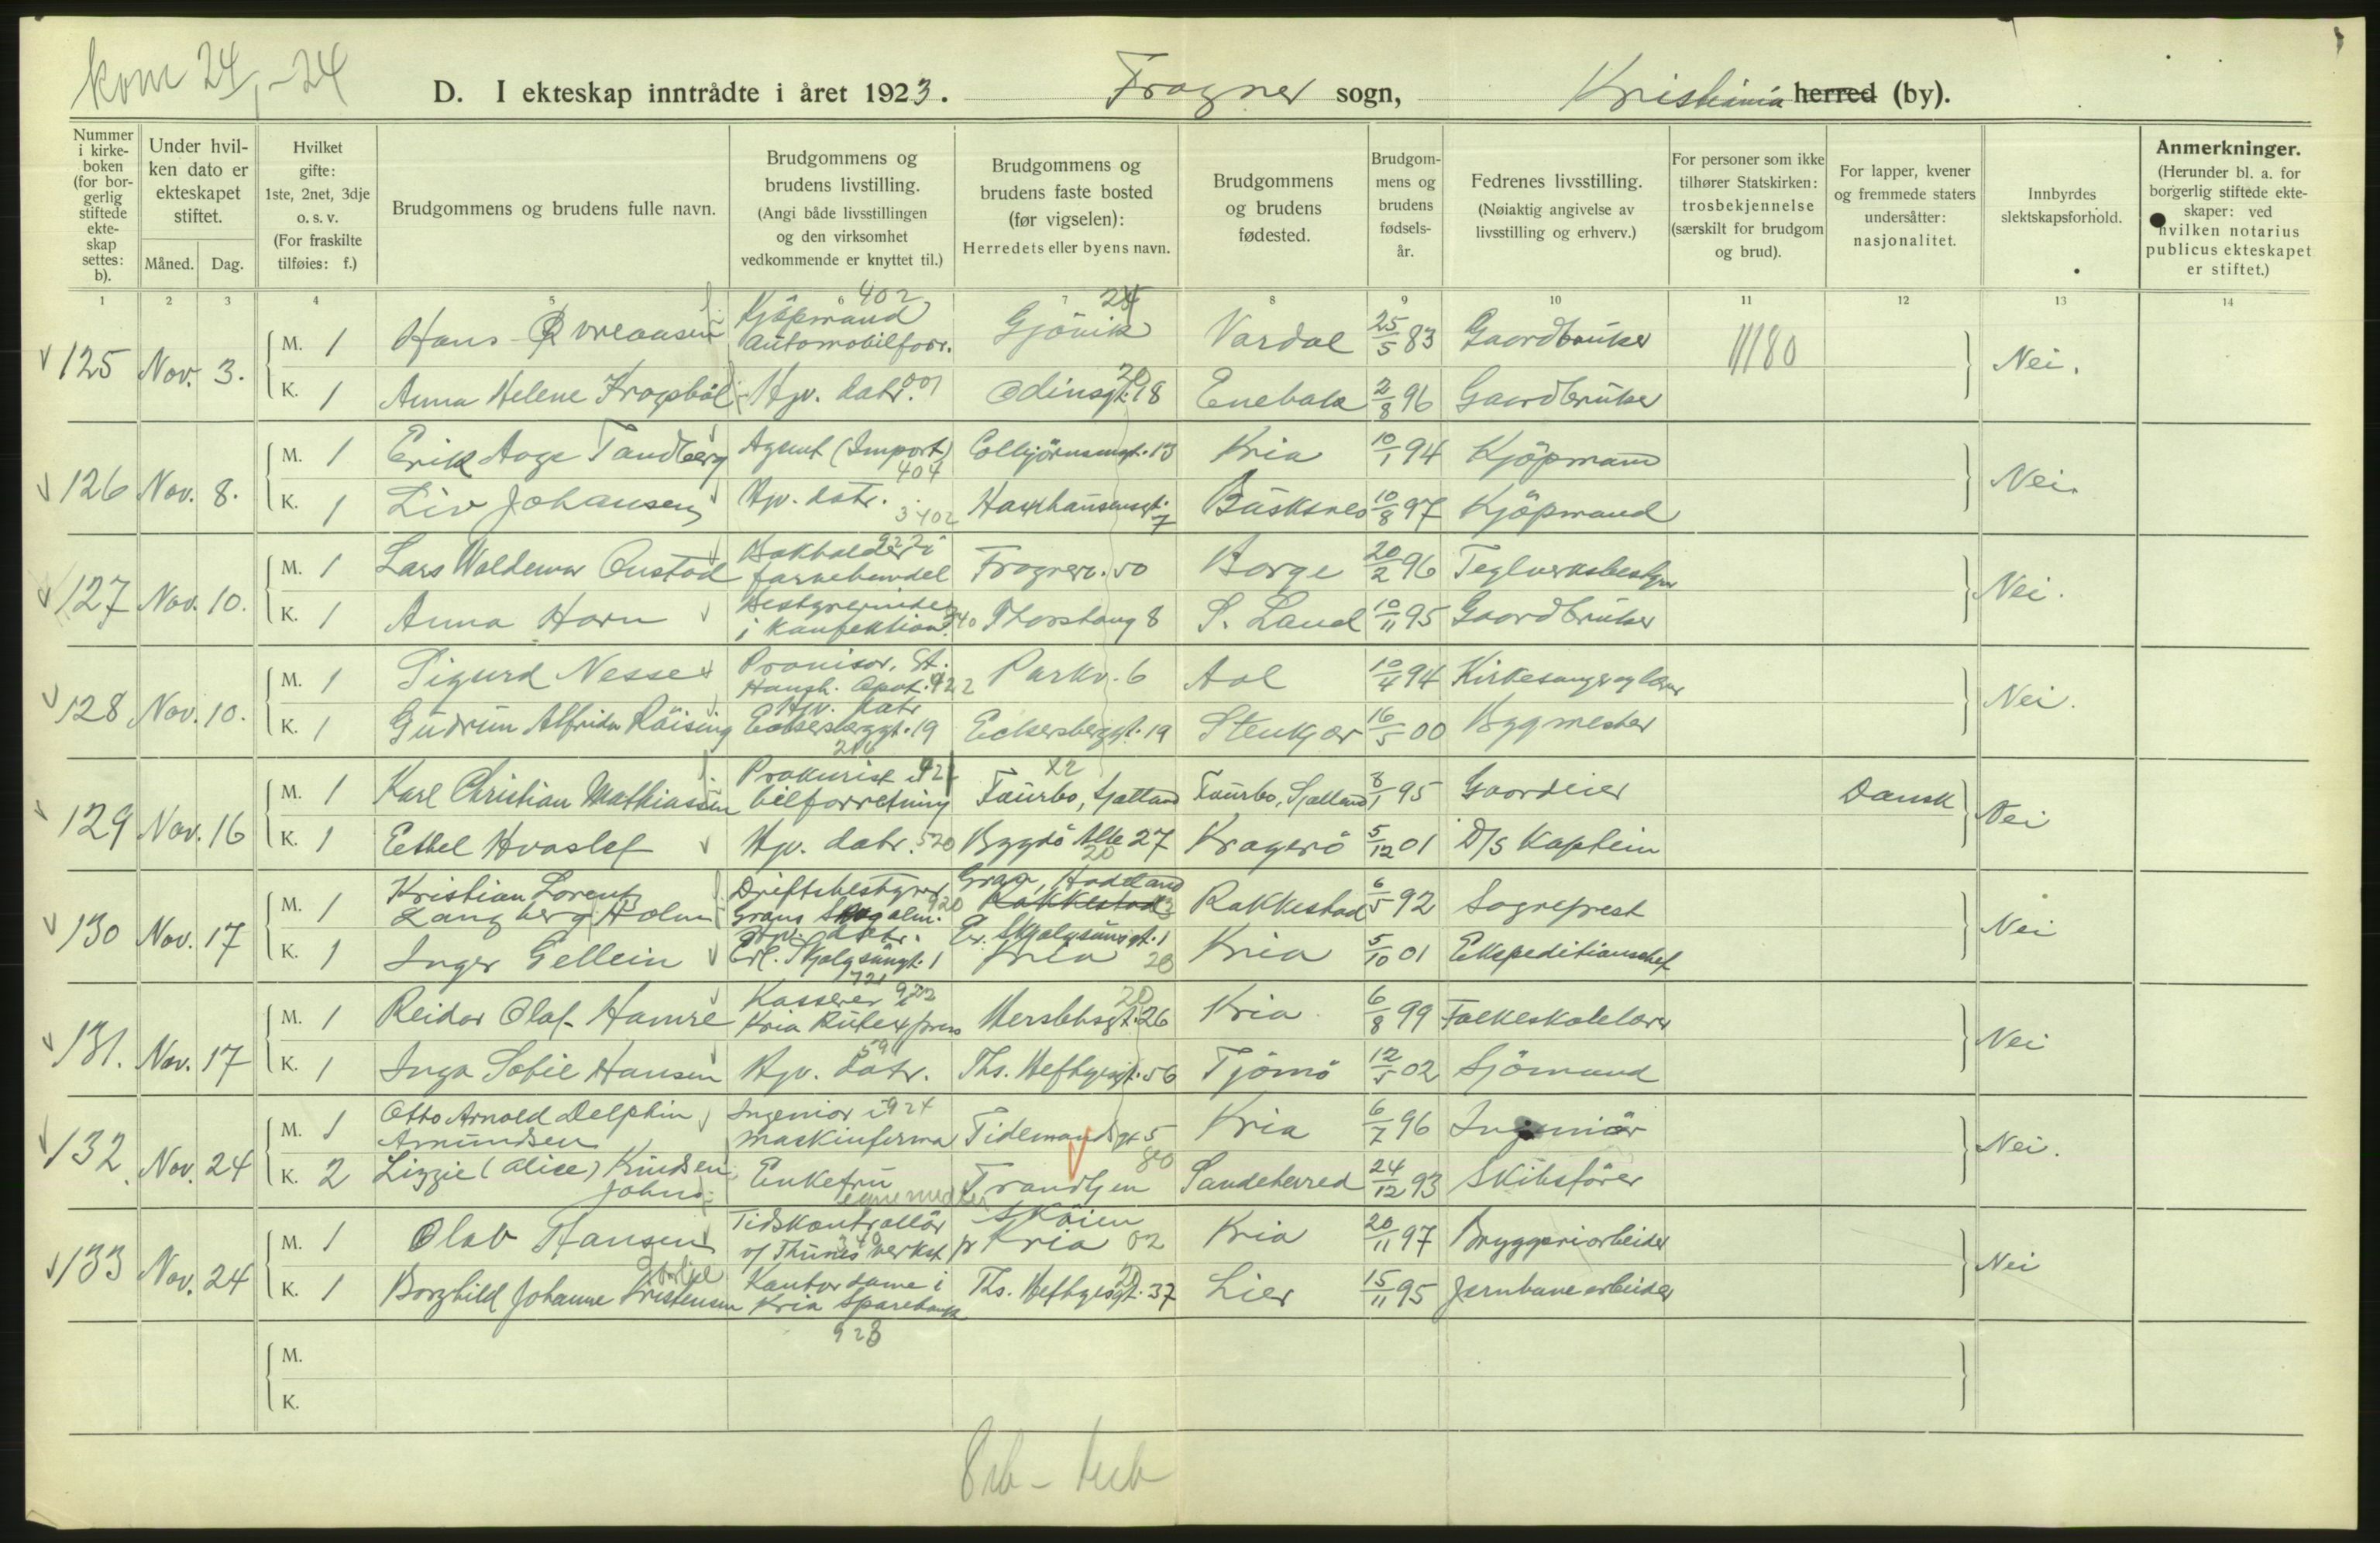 kom 24/1-24
D. I ekteskap inntrådte i året 1923. Frogner sogn, Kristiania herred (by).
Nummer i kirkeboken (for borgerlig stiftede ekteskap settes: b).
Under hvilken dato er ekteskapet stiftet.
Måned. Dag.
Hvilket gifte: 1ste, 2net, 3dje o. s. v. (For fraskilte tilføies: f.)
Brudgommens og brudens fulle navn.
Brudgommens og brudens livstilling. (Angi både livsstillingen og den virksomhet vedkommende er knyttet til.)
Brudgommens og brudens faste bosted (før vigselen): Herredets eller byens navn.
Brudgommens og brudens fødested.
Brudgommens og brudens fødselsår.
Fedrenes livsstilling. (Nøiaktig angivelse av livsstilling og erhverv.)
For personer som ikke tilhører Statskirken: trosbekjennelse (særskilt for brudgom og brud).
For lapper, kvener og fremmede staters undersåtter: nasjonalitet.
Innbyrdes slektskapsforhold.
Anmerkninger. (Herunder bl. a. for borgerlig stiftede ekteskaper: ved hvilken notarius publicus ekteskapet er stiftet.)
1 2 3 4 5 6 7 8 9 10 11 12 13 14
125 Nov. 3. M. 1 Hans Kjöpmand Automobilforr. 402 Gjövik Vardal 25/5 83 Gaardbruker 11180 Nei.
K. 1 Anna Helene Krogsböl Hjv. datr. Odinsgt. 18 Enebak 2/8 96 Gaardbruker
126 Nov. 8. M. 1 Erik Aage Tandberg Agent (Import) 404 Colbjörnsensgt. 13 Kria 10/1 94 Kjöpmand Nei.
K. 1 Liv Johansen Hjv. datr. 3402 Haxthausensgt. 7 Buksnes 10/8 97 Kjöpmand
127 Nov. 10. M. 1 Lars Waldemar Onstad Bokholder i farvehandel Frognerv. 50 Borge 20/2 96 Teglverksbestyrer Nei.
K. 1 Anna Horn Bestyrerinde i Konfektion Thorshaug 8 S. Land 10/11 95 Gaardbruker
128 Nov. 10. M. 1 Sigurd Nesse Provisor, St. Hansh. Apot. 922 Parkv. 6 Aal 10/4 94 Kirkesanger og lærer Nei.
K. 1 Gudrun Alfrida Röising Hjv. datr Eckersberggt. 19 Eckersberggt. 19 Stenkjær 16/5 00 Bygmester
129 Nov. 16 M. 1 Karl Christian Mathiassen Prokurist i bilforretning Taurbo, Sjælland Taurbo, Sjælland 8/1 95 Gaardeier Dansk Nei
K. 1 Eethel Hvoslef Hjv. datr. 520 Bygdö Alle 27 Kragerö 5/12 01 D/S Kaptein
130 Nov. 17 M. 1 Kristian Lorentz Langberg Holm Driftsbestyrer Grans Skogalm. 920 Gran, Hadeland Rakkestad Rakkestad 6/5 92 Sogneprest Nei
K. 1 Inger Gellein Hjv. datr. Erl. Skjalgsöngt. 1 Er. Skjalgsöns gt. 1 Kria 20 Kria 5/10 01 Ekspeditionschef
131. Nov. 17 M. 1 Reidar Olaf Hamre Kasserer i Kria Rutexpress 922 Herslebsgt. 26 Kria 6/8 99 Folkeskolelærer Nei
K. 1 Inga Sofie Hansen Hjv. datr. Ths. Heftyesgt. 56 Tjömö 12/5 02 Sjömand
132. Nov. 24 M. 1 Otto Arnold Delphin Amundsen Ingeniör i maskinfirma 924 Tidemandsgt 5 Kria 6/7 96 Ingeniör Nei.
K. 2 Lizzie (Alice) Knudsen Enkefru Trondhjem 80 Sandeherred 24/12 93 Skibsförer
133 Nov. 24 M. 1 Olav Hansen Tidskontrollör v/ Thunes verkst. Sköien pr Kria 02 Kria 20/11 97 Bryggeriarbeider Nei
K. 1 Borghild Johanne Kristensen Kontordame i Kria Sparebank 928 Ths. Heftyesgt. 37 Lier 15/11 95 Jernbanearbeider
M.
K.